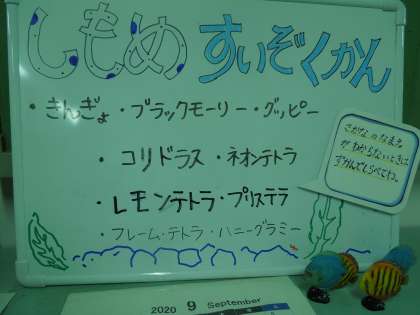 しもめ すいぞくかん
・きんぎょ・ブラックモーリー・グッピー
・コリドラス・ネオンテトラ
・レモンテトラ・プリステラ
・フレーム・テトラ・ハニーグラミー
さかなのなまえ
がわからないときは
ずかんでしらべてね。
2020 9 September